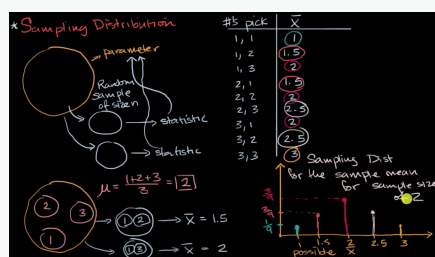 * Sampling Distribution
parameter
Random
sample
of size n
statistic
statistic
μ = (1+2+3)/3 = 2
2
3
1
1 2 → x̄ = 1.5
1 3 → x̄ = 2
#'s pick x̄
1, 1 1
1, 2 1.5
1, 3 2
2, 1 1.5
2, 2 2
2, 3 2.5
3, 1 2
3, 2 2.5
3, 3 3
Sampling Dist
for the sample mean
for sample size
of 2
3/9
2/9
1/9
1 1.5 2 2.5 3
possible x̄